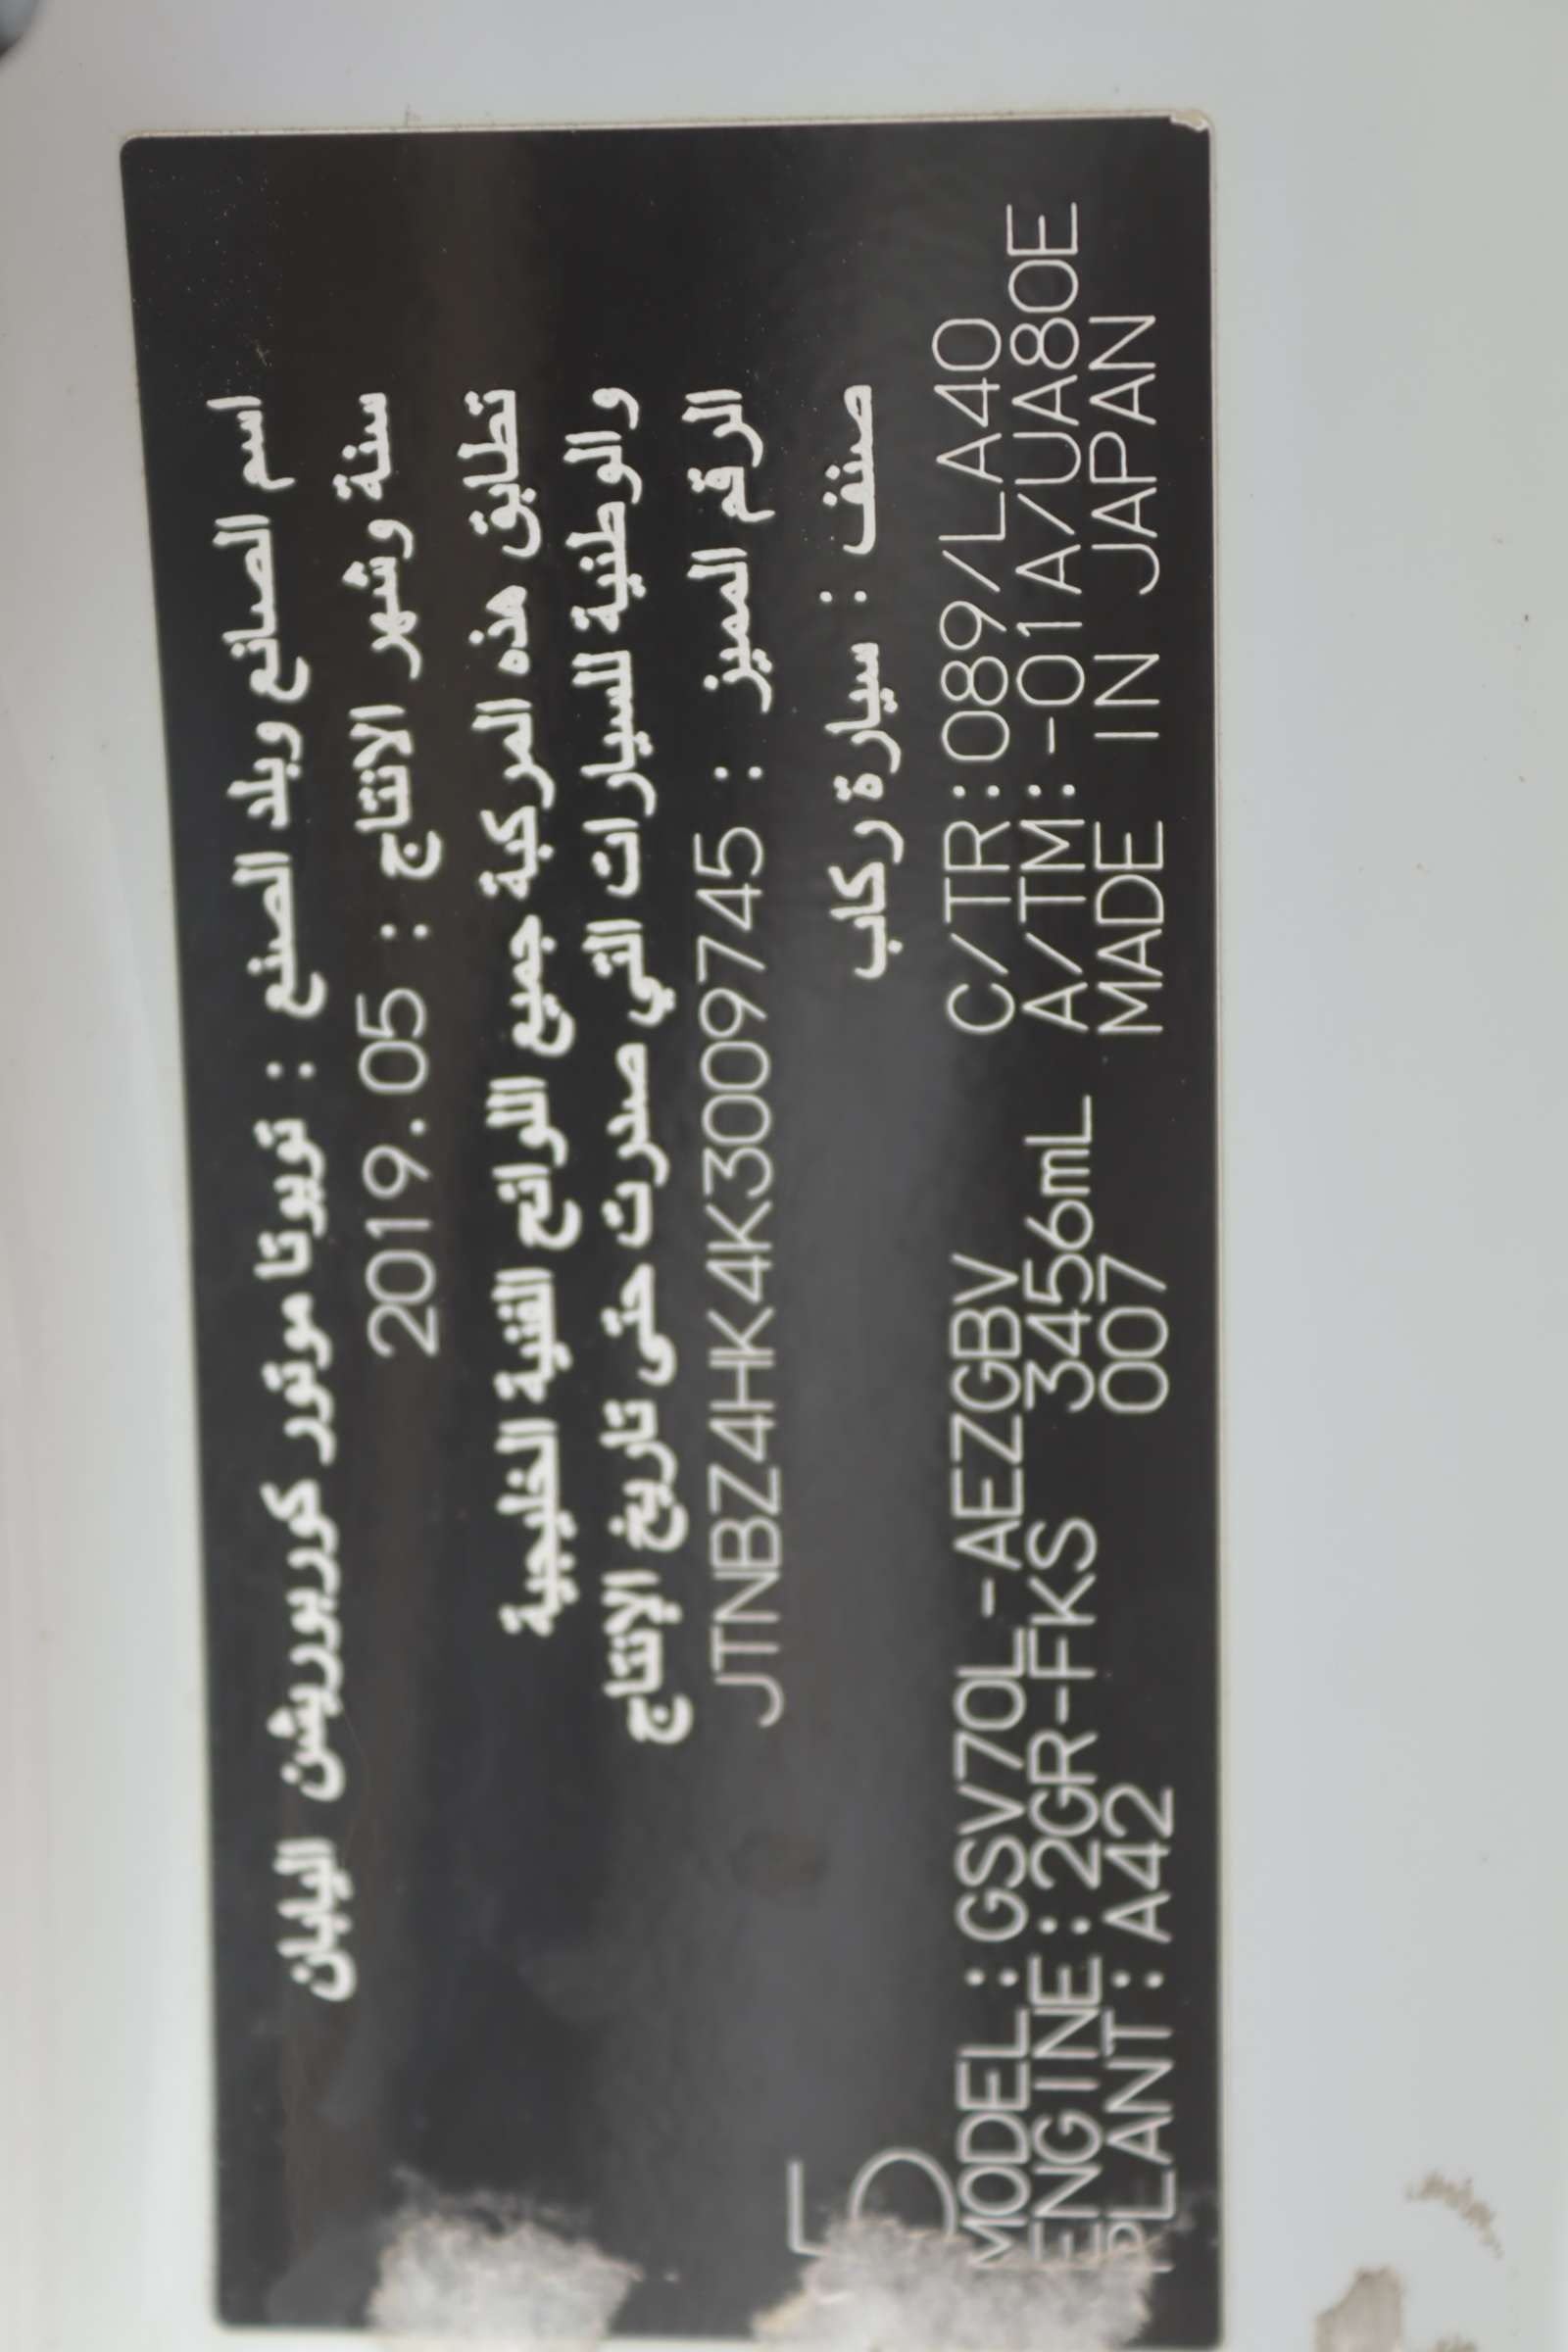 اسم الصانع وبلد الصنع : تويوتا موتور كوربوريشن اليابان
سنة وشهر الانتاج : 2019.05
تطابق هذه المركبة جميع اللوائح الفنية الخليجية
والوطنية للسيارات التي صدرت حتى تاريخ الإنتاج
الرقم المميز : JTNBZ4HK4K3009745
صنف : سيارة ركاب
5
MODEL :GSV70L-AEZGBV C/TR:089/LA40
ENGINE:2GR-FKS 3456mL A/TM:-01A/UA80E
PLANT:A42 007 MADE IN JAPAN